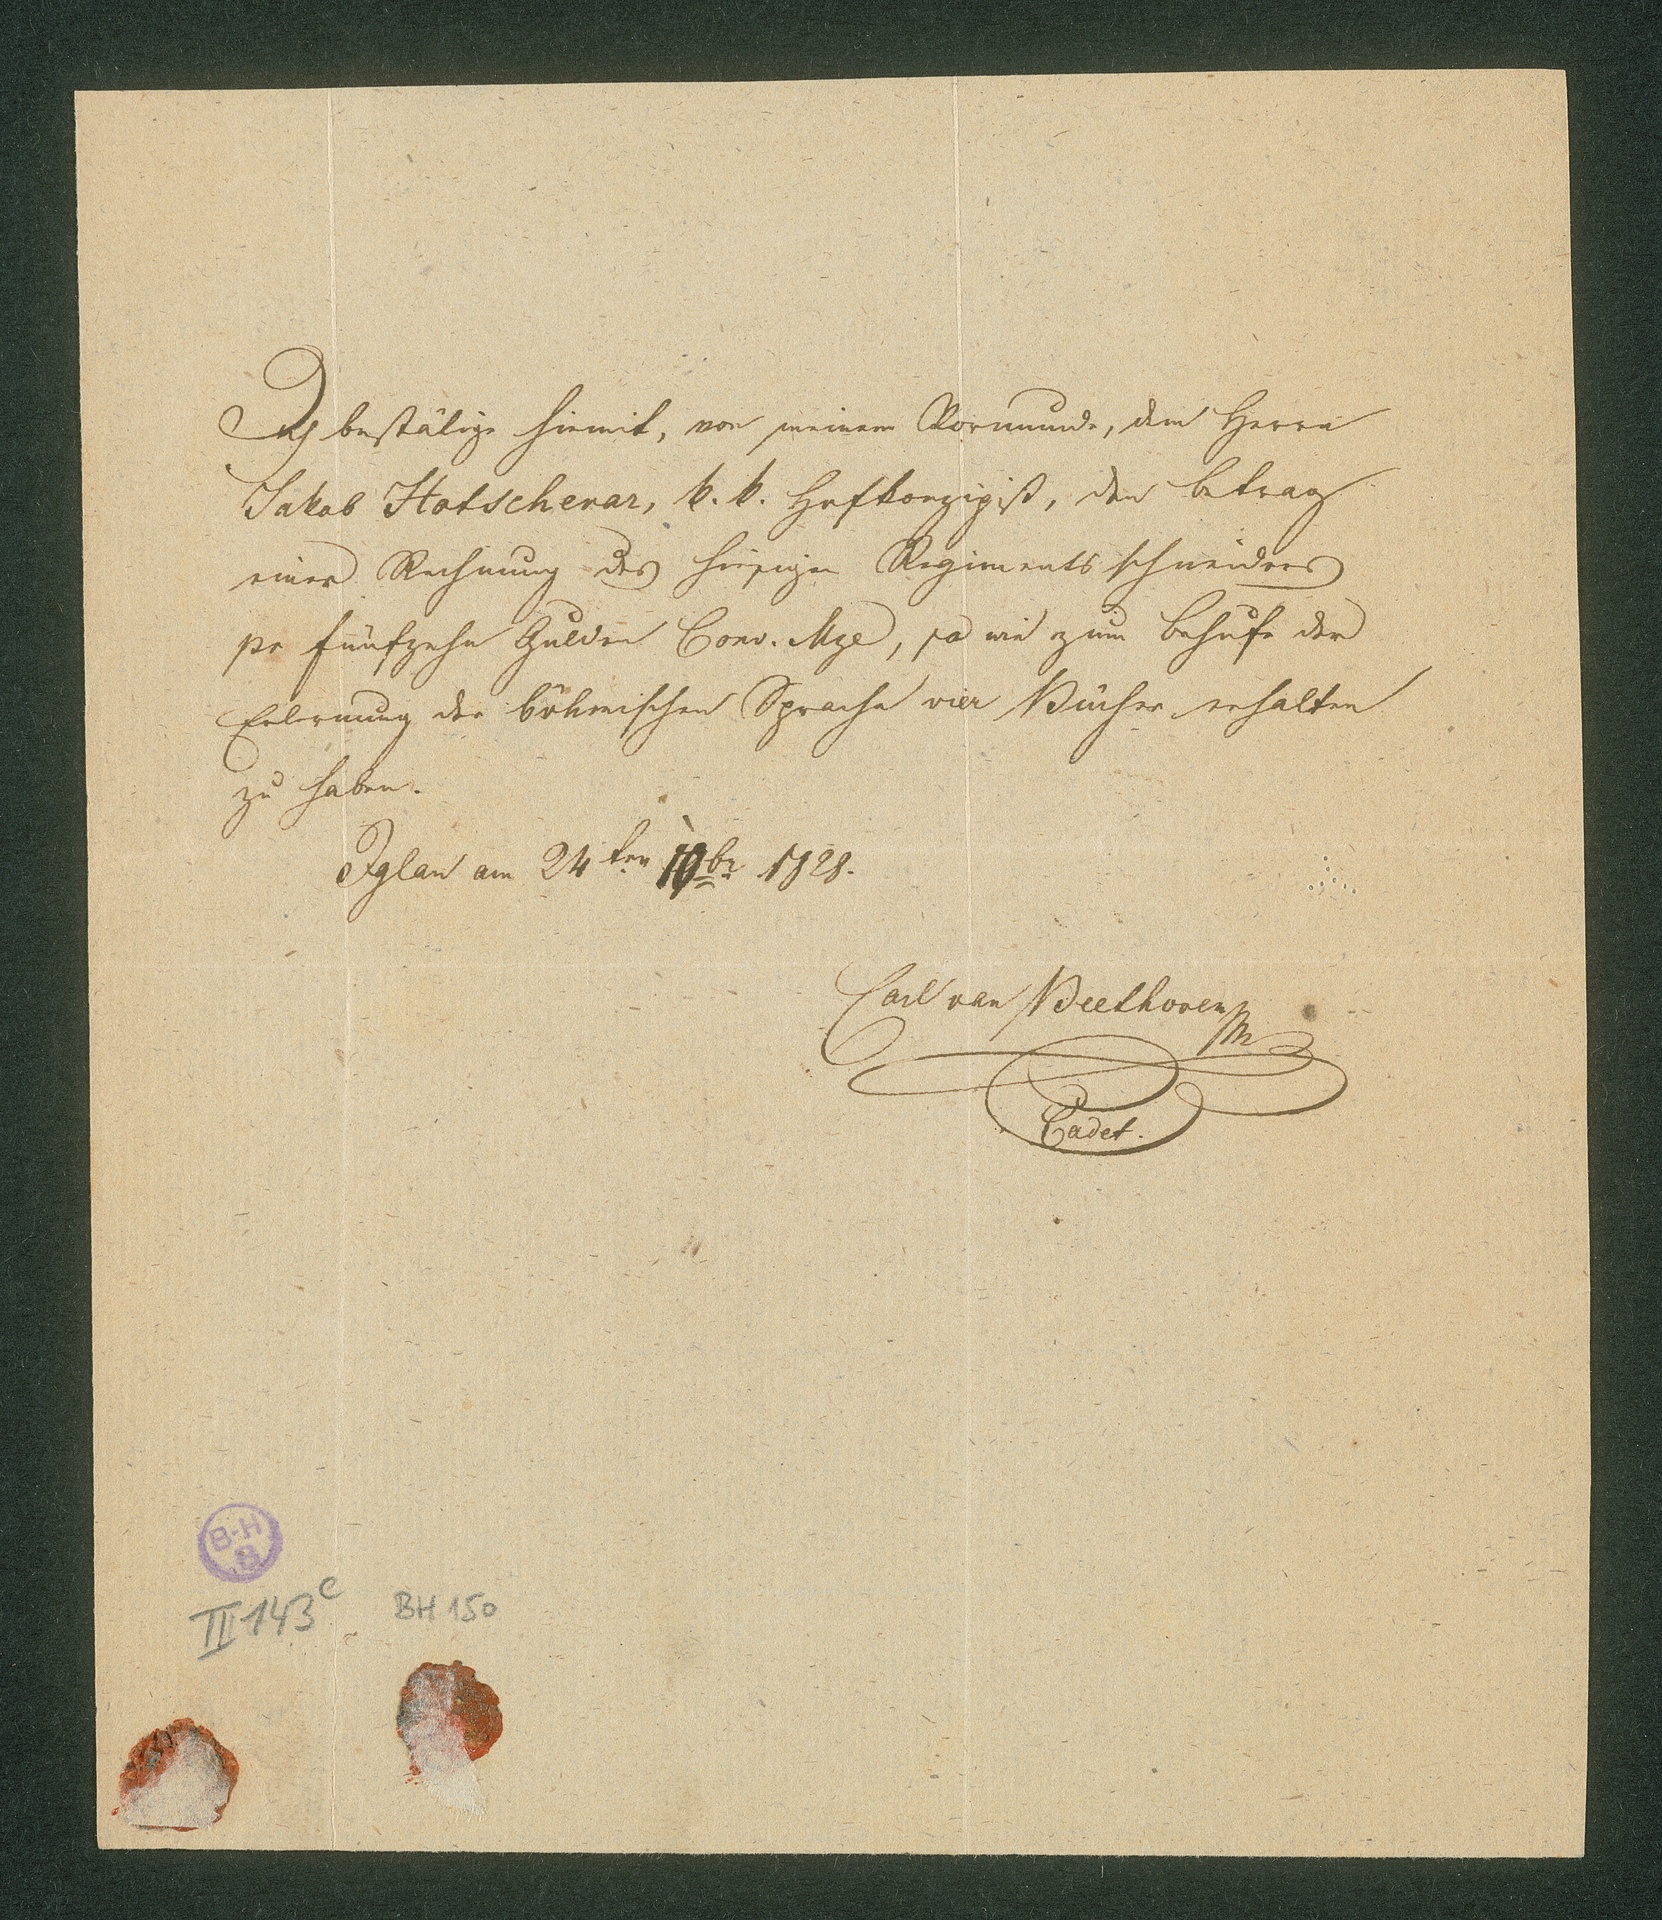 Ich bestätige hiemit, von meinem Vormunde, dem Herrn
Jakob Hotschevar, k. k. Hofkonzipist, den Betrag
einer Rechnung des hiesigen Regimentsschneiders
pr fünfzehn Gulden Conv. Mze, so wie zum Behufe der
Erlernung der böhmischen Sprache vier Bücher erhalten
zu haben.
Iglau am 24ten 10br 1828.
Carl van Beethoven
Cadet.
B-H
B
II 143c BH 150